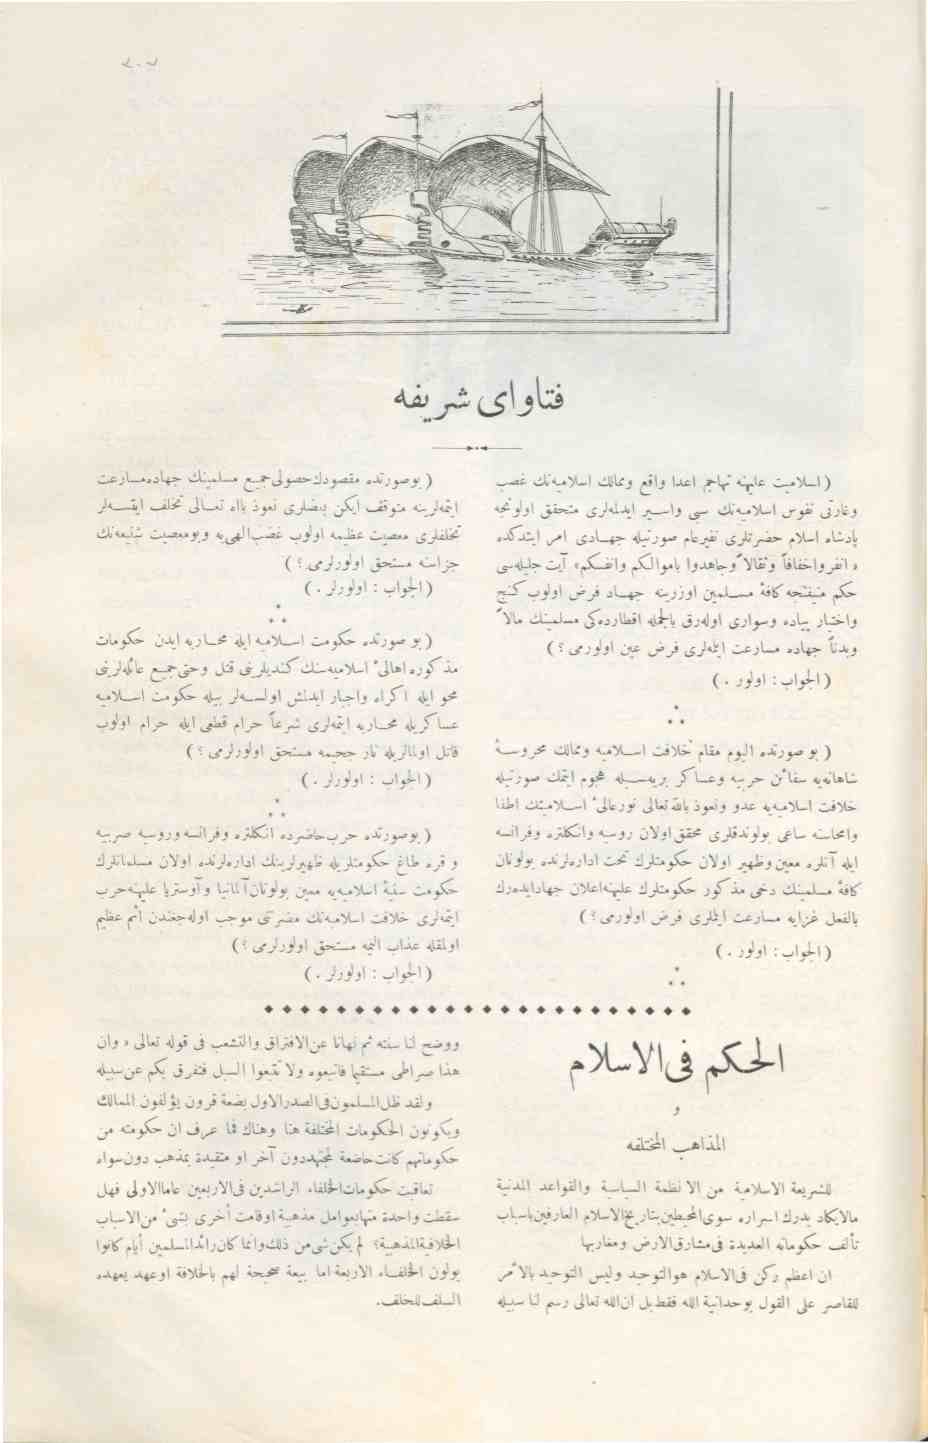 فتاوای شریفه
( اسلامیت علیهنه تهاجم اعدا واقع وممالك اسلامیه‌نك غصب
وغارتی نفوس اسلامیه‌نك سبی واسیر ایدلمه‌لری متحقق اولونجه
پادشاه اسلام حضرتلری نفیرعام صورتیله جهادی امر ایتدکده
« انفروا خفافاً وثقالاً وجاهدوا باموالکم وانفسکم» آیت جلیله‌سی
حکم منیفنجه کافهٔ مسلمین اوزرینه جهاد فرض اولوب کنج
واختیار پیاده وسواری اوله‌رق بالجمله اقطارده‌کی مسلمینك مالاً
وبدناً جهاده مسارعت ایتمه‌لری فرض عین اولورمی ؟ )
( الجواب : اولور . )
( بو صورتده الیوم مقام خلافت اسلامیه وممالك محروسهٔ
شاهانه‌یه سفائن حربیه وعساکر بریه‌سیله هجوم ایتمك صورتیله
خلافت اسلامیه‌یه عدو ونعوذ بالله تعالی نورعالیٔ اسلامیتك اطفا
وامحاسنه ساعی بولوندقلری محقق اولان روسیه وانکلتره وفرانسه
ایله آنلره معین وظهیر اولان حکومتلرك تحت اداره‌لرنده بولونان
کافهٔ مسلمینك دخی مذکور حکومتلرك علیهنه اعلان جهاد ایده‌رك
بالفعل غزایه مسارعت ایتملری فرض اولورمی ؟ )
( الجواب : اولور . )
( بوصورتده مقصودك حصولی جمیع مسلمینك جهاده مسارعت
ایتمه‌لرینه متوقف ایکن بعضلری نعوذ بالله تعالی تخلف ایتسه‌لر
تخلفلری معصیت عظیمه اولوب غضب الهی‌یه وبومعصیت شنیعه‌نك
جزاسنه مستحق اولورلرمی ؟ )
( الجواب : اولورلر . )
( بو صورتده حکومت اسلامیه ایله محاربه ایدن حکومات
مذکوره اهالیٔ اسلامیه‌سنك کندیلرینی قتل وحتی جمیع عائله‌لرینی
محو ایله اکراه واجبار ایدلمش اولسه‌لر بیله حکومت اسلامیه
عساکریله محاربه ایتمه‌لری شرعاً حرام قطعی ایله حرام اولوب
قاتل اولمالریله نار جحیمه مستحق اولورلرمی ؟ )
( الجواب : اولورلر . )
( بوصورتده حرب حاضرده انکلتره وفرانسه وروسیه صربیه
و قره طاغ حکومتلریله ظهیرلرینك اداره‌لرنده اولان مسلمانلرك
حکومت سنیهٔ اسلامیه‌یه معین بولونان آلمانیا وآوستریا علیهنه حرب
ایتمه‌لری خلافت اسلامیه‌نك مضرتی موجب اوله‌جغندن اثم عظیم
اولمقله عذاب الیمه مستحق اولورلرمی ؟ )
( الجواب : اولورلر . )
الحکم فی الاسلام
و
المذاهب المختلفه
للشریعة الاسلامیة من الانظمة السیاسیة والقواعد المدنیة
مالایکاد یدرك اسراره سوی المحیطین بتاریخ الاسلام العارفین باسباب
تألف حکوماته العدیدة فی مشارق الارض ومغاربها
ان اعظم رکن فی الاسلام هو التوحید ولیس التوحید بالامر
القاصر علی القول بوحدانیة الله فقط بل ان الله تعالی رسم لنا سبیله
ووضح لنا سنته ثم نهانا عن الافتراق والتشعب فی قوله تعالی « وان
هذا صراطی مستقیما فاتبعوه ولا تتبعوا السبل فتفرق بکم عن سبیله
ولقد ظل المسلمون فی الصدر الاول بضعة قرون یؤلفون الممالك
ویکونون الحکومات المختلفة هنا وهناك فما عرف ان حکومته من
حکوماتهم کانت خاضعة لمجتهد دون آخر او متقیدة بمذهب دون سواه
تعاقبت حکومات الخلفاء الراشدین فی الاربعین عاما الاولی فهل
سقطت واحدة منها بعوامل مذهبیة اوقامت أخری بشیء من الاسباب
الخلافیة المذهبیة؟ لم یکن شیٔ من ذلك وانما کان رائد المسلمین أیام کانوا
یولون الخلفاء الاربعة اما بیعة صحیحة لهم بالخلافة اوعهد یعهده
السلف للخلف.